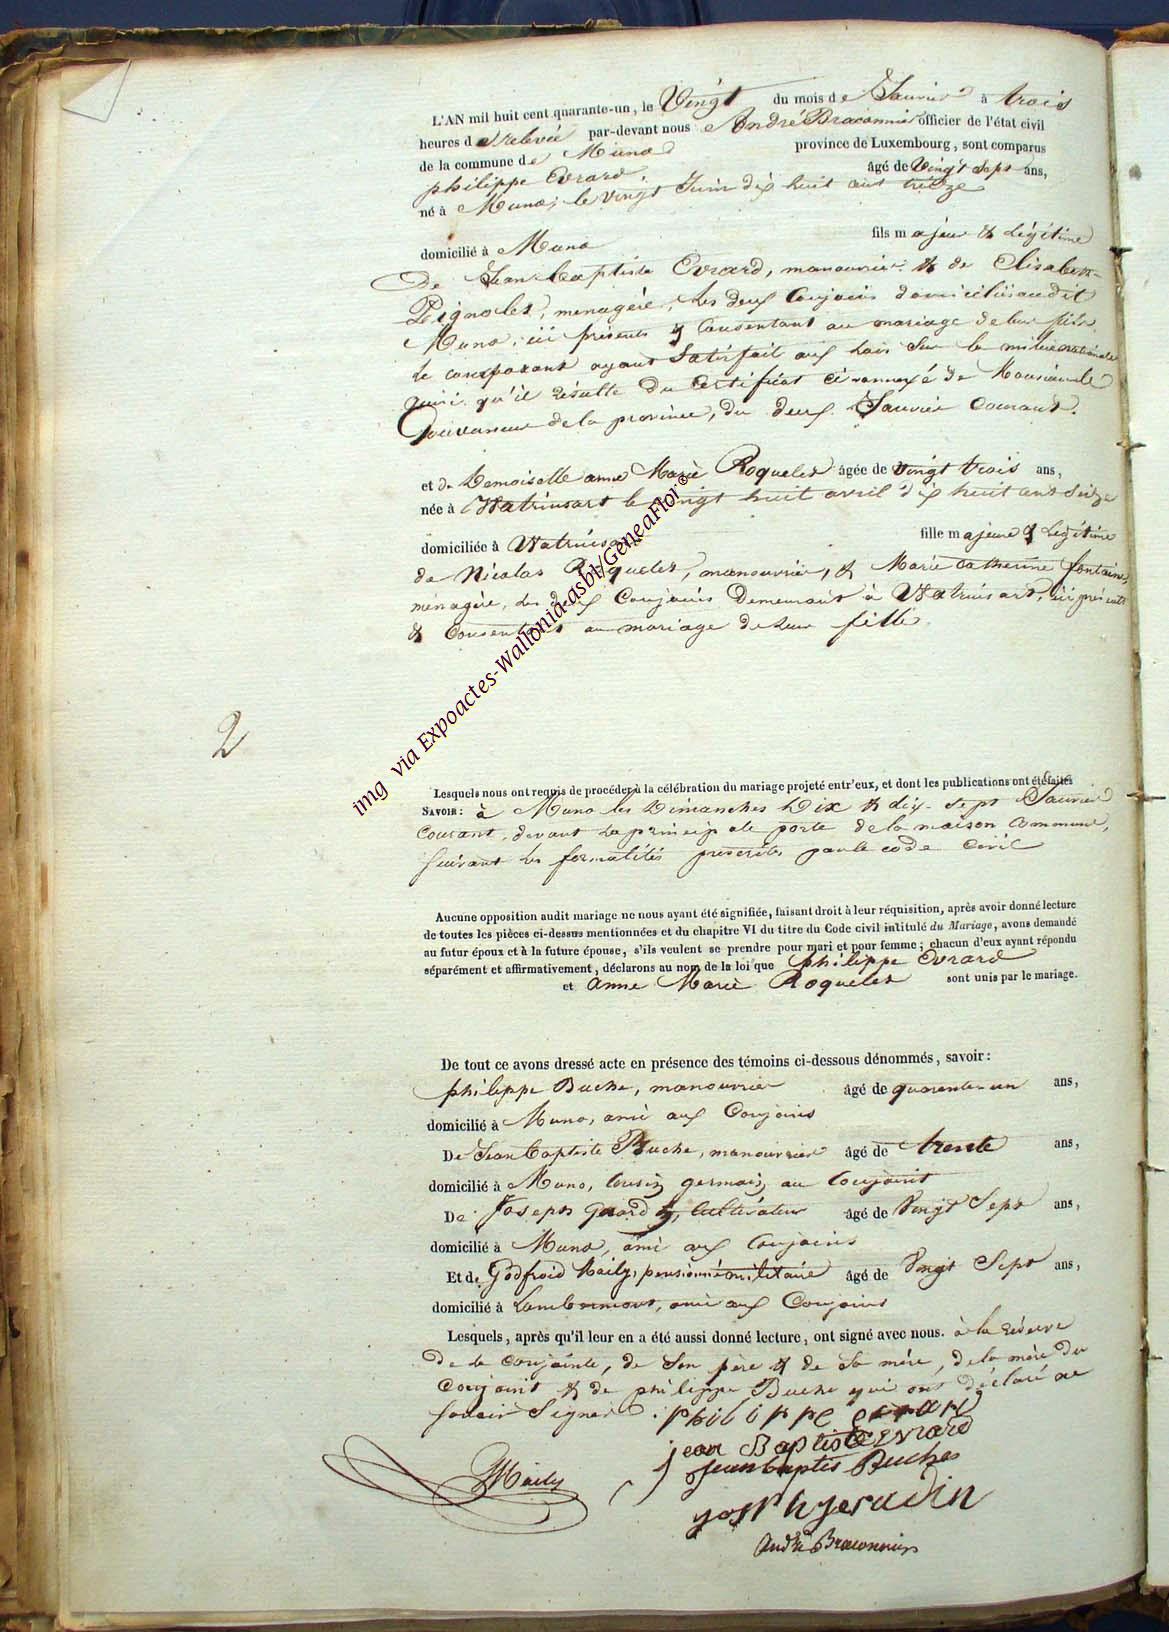 L'AN mil huit cent quarante-un, le Vingt du mois de Janvier à trois
heures de relevée par-devant nous André Braconnier officier de l'état civil
de la commune de Muno province de Luxembourg, sont comparus
philippe Evrard âgé de Vingt Sept ans,
né à Muno, le vingt Juin dix huit cent treize
domicilié à Muno fils majeur & Légitime
De Jean Baptiste Evrard, manouvrier & de Elisabeth
Pignolet, menagère, les deux Conjoints domiciliés audit
Muno, ici présents & Consentant au mariage de leur fils,
le comparant ayant Satisfait aux Lois Sur la milice nationale
ainsi qu'il résulte du Certificat ci annexé de Monsieur le
Gouverneur de la province, du deux Janvier Courant.
et de Demoiselle anne Marie Roquelet âgée de vingt trois ans,
née à Watrinsart le vingt huit avril dix huit cent Seize
domiciliée à Watrinsart fille majeure & Légitime
de Nicolas Roquelet, manouvrier, & Marie Catherine fontaine,
ménagère, les deux Conjoints Demeurant à Watrinsart, ici présents
& Consentant au mariage de Leur fille.
2
Lesquels nous ont requis de procéder à la célébration du mariage projeté entr'eux, et dont les publications ont été faites
SAVOIR: à Muno les Dimanches Dix & dix-sept Janvier
Courant, devant la principale porte de la maison Commune,
Suivant les formalités prescrites par le code Civil
Aucune opposition audit mariage ne nous ayant été signifiée, faisant droit à leur réquisition, après avoir donné lecture
de toutes les pièces ci-dessus mentionnées et du chapitre VI du titre du Code civil intitulé du Mariage, avons demandé
au futur époux et à la future épouse, s'ils veulent se prendre pour mari et pour femme; chacun d'eux ayant répondu
séparément et affirmativement, déclarons au nom de la loi que philippe Evrard
et anne Marie Roquelet sont unis par le mariage.
De tout ce avons dressé acte en présence des témoins ci-dessous dénommés, savoir:
philippe Buche, manouvrier âgé de quarante-un ans,
domicilié à Muno, ami aux Conjoints
De Jean Baptiste Buche, manouvrier âgé de trente ans,
domicilié à Muno, Cousin germain au Conjoint
De Joseph Gerardin, Cultivateur âgé de Vingt Sept ans,
domicilié à Muno, ami aux Conjoints
Et de Godfroid Maily, pensionné militaire âgé de Vingt Sept ans,
domicilié à Lambermont, ami aux Conjoints
Lesquels, après qu'il leur en a été aussi donné lecture, ont signé avec nous. à la réserve
De la Conjointe, de Son père & de Sa mère, de la mère du
Conjoint & de philippe Buche qui ont déclaré ne
Savoir Signer. philippe evrard
jean Baptiste Evrard
Jean baptis Buches
Maily
josph jeradin
André Braconnier
img via Expoactes-Wallonia-asbl/GeneaFlor©